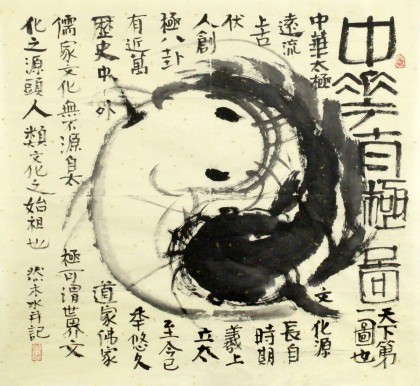 中华極圖
天下第
一圖也
中華太極文化源
遠流長自
上古時期
伏羲上
人創立太
極八卦至今已
有近萬年悠久
歷史中外道家佛家
儒家文化無不源自太極可謂世界文
化之源頭人類文化之始祖也
記